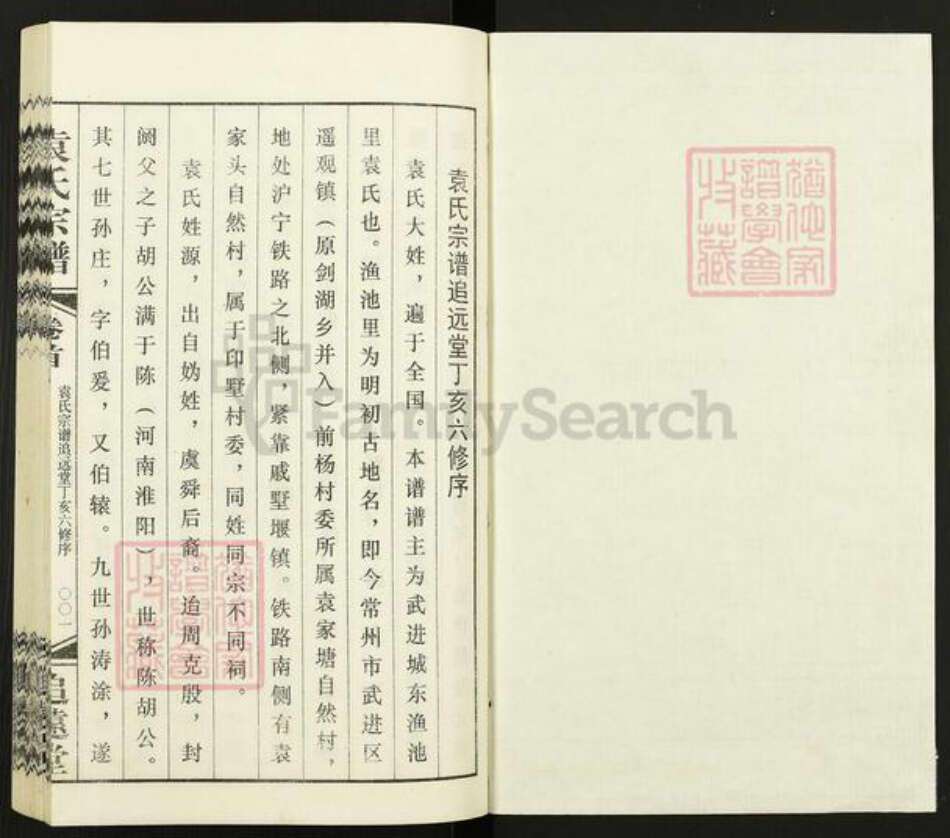 犹他家
谱学会
收藏
袁氏宗谱追远堂丁亥六修序
袁氏大姓，遍于全国。本谱谱主为武进城东渔池
里袁氏也。渔池里为明初古地名，即今常州市武进区
遥观镇（原剑湖乡并入）前杨村委所属袁家塘自然村，
地处沪宁铁路之北侧，紧靠戚墅堰镇。铁路南侧有袁
家头自然村，属于印墅村委，同姓同宗不同祠。
袁氏姓源，出自妫姓，虞舜后裔。迨周克殷，封
阏父之子胡公满于陈（河南淮阳），世称陈胡公。
其七世孙庄，字伯爰，又伯辕。九世孙涛涂，遂
袁氏宗谱
卷首
袁氏宗谱追远堂丁亥六修序
〇〇一
追远堂
FamilySearch